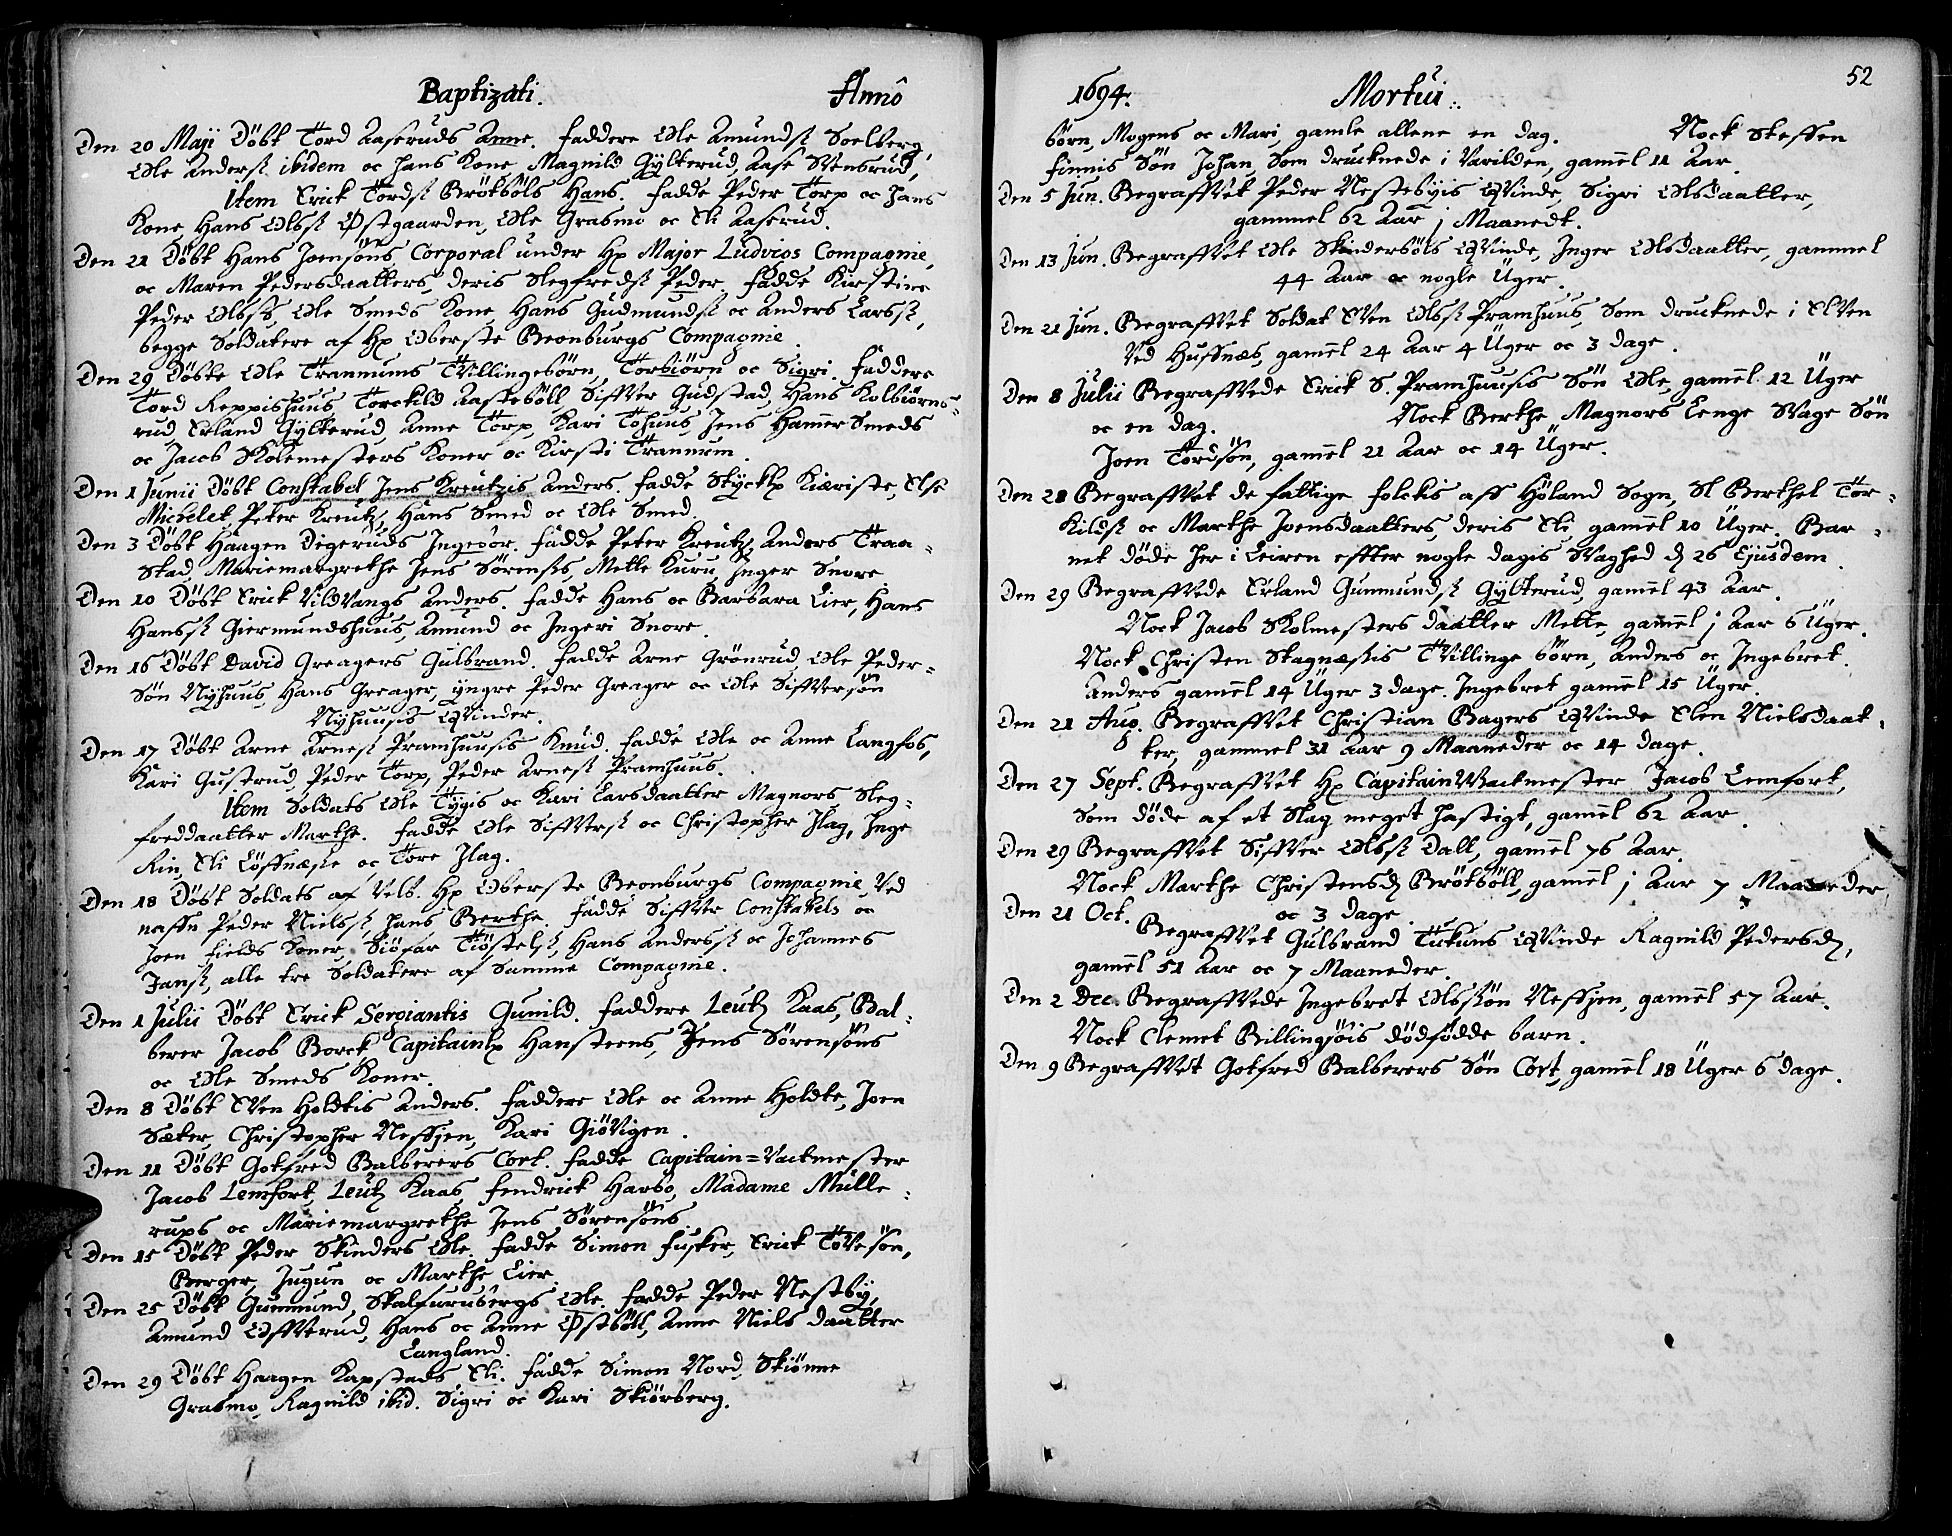 Baptizati. Anno
Den 20 Maji Döbt Tord Aaseruds Anne. Faddere Ole Amundsß Soelberg,
Ole Andersß ibidem oc hans Kone, Magnild Gylterud, Aase Stensrud,
Item Erick Tordsß Brötböls Hans. Fadde Peder Torp oc hans
Kone, Hans Olsß Østgaarden, Ole Grasmo oc Eli Aaserud.
Den 21 Döbt Hans Joensöns, Corporal under Hr Major Ludvigs Compagnie,
oc Maren Pedersdaatters, deris Slegfredsß Peder. Fadde Kirstine
Peder Olsß, Ole Smeds Kone, Hans Gudmundsß oc Anders Larsß,
begge Soldatere af Hr Oberste Beonburgs Compagnie.
Den 29 Döbte Ole Trannums Tvillingebörn, Torbiörn oc Sigri. Faddere
Tord Reppishuus, Torckild Aastebøll, Siffver Gudstad, Hans Kolbiörns-
rud, Erland Gylterud, Anne Torp, Kari Tohuus, Jens Hamer Smeds
oc Jacob Skolemesters Koner oc Kirsti Trannum.
Den 1 Junii Döbt Constabel, Jens Kreutzis Anders. Fadde Styckhr Kiæriste, Else
Michelet, Peter Kreutz, Hans Smed oc Ole Smed.
Den 3 Döbt Haagen Digeruds Ingebör. Fadde Peter Kreutz, Anders Traa-
stad, Mariemargrethe Jens Sörensß, Mette Kuru, Inger Snore.
Den 10 Döbt Erick Vildvangs Anders. Fadde Hans oc Barbara Lier, Hans
Hansß Giermundshuus, Amund oc Ingeri Snore.
Den 16 Döbt David Greagers Gulbrand. Fadde Arne Grönrud, Ole Peder-
sön Nyhuus, Hans Greager, yngre Peder Greager oc Ole Siffversön
Nyhuusis Qvinder.
Den 17 Döbt Arne Arnesß Pramhuusis Knud. Fadde Ole oc Anne Langfos,
Kari Gustrud, Peder Torp, Peder Arnesß Pramhuus.
Item Soldats Ole Tygis oc Kari Larsdaatter Magnors Sleg-
freddaatter Marthe. Fadde Ole Siffversß oc Christopher Ilag, Inge
Rin, Eli Löffnæsße oc Tore Ilag.
Den 18 Döbt Soldats af Velb. Hr Oberste Beonburgs Compagnie, Ved
naffn Peder Nielsß, hans Berthe. Fadde Siffver Constabels oc
Joen Fields Koner, Siöfar Tiöstelsß, Hans Andersß oc Johannes
Jansß, alle tre Soldatere af Samme Compagnie.
Den 1 Julii Döbt Erick Sergiantis Gunild. Faddere Leutz Kaas, Bal-
berer Jacob Borck, Capitainhr Hansteens, Jens Sörensöns
oc Ole Smeds Koner.
Den 8 Döbt Sven Holdtis Anders. Faddere Ole oc Anne Holdte, Joen
Sæter, Christopher Neffsjen, Kari Giövigen.
Den 11 Döbt Gotfred Balberers Cort. Fadde Capitain=Vactmester
Jacob Lemfort, Leutz Kaas, Fendrick Harbo, Madame Mülle-
rups oc Mariemargrethe Jens Sörensöns.
Den 15 Döbt Peder Skinders Ole. Fadde Simon Fusker, Erick Tövesön,
Berger, Jugun oc Marthe Lier.
Den 25 Döbt Gunmund, Skalfurubergs Ole. Fadde Peder Nestby,
Amund Offverud, Hans oc Anne Østböll, Anne Niels daatter
Langland.
Den 29 Döbt Haagen Kapstads Eli. Fadde Simon Nord, Skiönne
Grasmo, Ragnild ibid. Sigri oc Kari Skiörberg.
1694. Mortui. 52
börn, Mogens oc Mari, gamle allene en dag. Nock Steffen
Finnis Sön Johan, som drucknede i Varilden, gamel 11 Aar.
Den 5 Jun. Begraffvet Peder Nestebyis Qvinde, Sigri Olsdaatter,
gammel 62 Aar j Maanedt.
Den 13 Jun. Begraffvet Ole Skindersböls Qvinde, Inger Olsdaatter, gammel
44 Aar oc nogle Uger.
Den 21 Jun. Begraffvet Soldat Sven Olsß Pramhuus, som drucknede i Elven
Ved Huffnæs, gamel 24 Aar 4 Uger oc 3 dage.
Den 8 Julii Begraffvede Erick S. Pramhuusis Sön Ole, gamel 12 Uger
oc en dag. Nock Berthe Magnors Lenge Svage Sön
Joen Tordsön, gamel 21 Aar oc 14 Uger.
Den 28 Begraffvet de fattige folckis aff Höland Sogn, Sl Berthel Tor-
kildsß oc Marthe Joensdaatters, deris Eli gamel 10 Uger. Bar-
net döde her i Leiren effter nogle dagis Svaghed d 26 Ejusdem.
Den 29 Begraffvede Erland Gunmundsß Gylterud, gamel 43 Aar.
Nock Jacob Skolmesters daatter Mette, gamel j Aar 6 Uger.
Nock Christen Skagnæssis Tvillinge börn, Anders oc Ingebret.
Anders gamel 14 Uger 3 dage. Ingebret gamel 15 Uger.
Den 21 Aug. Begraffvet Christian Bagers Qvinde Elen Nielsdaat-
ter, gammel 31 Aar 9 Maaneder oc 14 dage.
Den 27 Sept. Begraffvet Hr CapitainVactmester Jacob Lemfort,
Som döde af et Slag meget hastigt, gamel 62 Aar.
Den 29 Begraffvet Siffver Olsß Dall, gamel 76 Aar.
Nock Marthe Christensd Brötböll, gamel j Aar 7 Maaneder
oc 3 dage.
Den 21 Oct. Begraffvet Gulbrand Tickuns Qvinde Ragnild Pedersd,
gamel 51 Aar oc 7 Maaneder.
Den 2 Dec. Begraffvede Ingebret Olssön Neffsjen, gamel 57 Aar.
Nock Clemet Billingsöis dödfödde barn.
Den 9 Begraffvet Gotfred Balberers Sön Cort, gamel 18 Uger 6 dage.